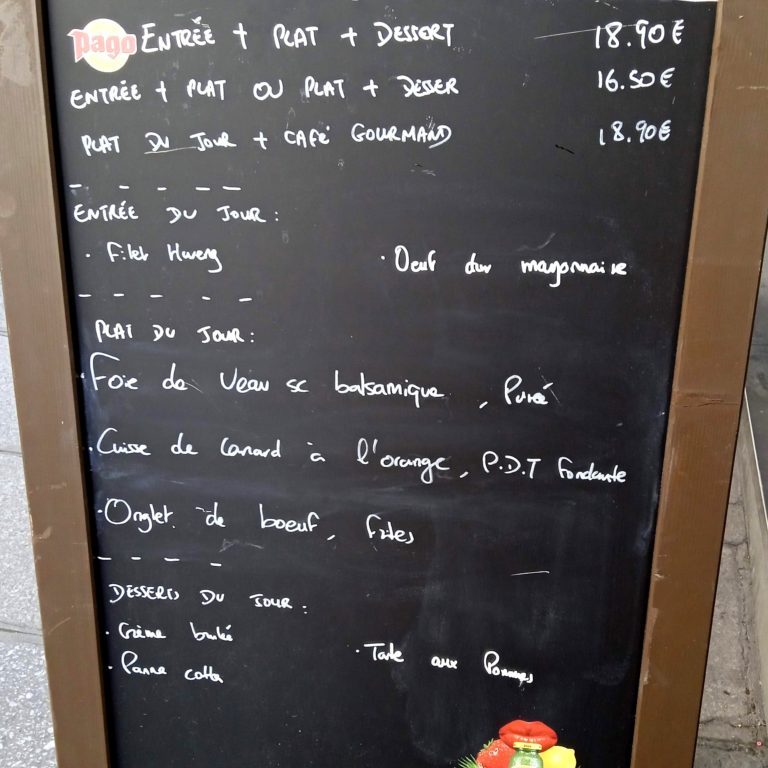 pago ENTRÉE + PLAT + DESSERT 18.90€
ENTRÉE + PLAT OU PLAT + DESSER 16.50€
PLAT DU JOUR + CAFÉ GOURMAND 18.90€
- - - - -
ENTRÉE DU JOUR :
· Filet Hareng · Oeuf dur mayonnaise
- - - - -
PLAT DU JOUR :
· Foie de Veau sc balsamique, Purée
· Cuisse de Canard à l'orange, P.D.T fondante
· Onglet de boeuf, frites
- - - -
DESSERTS DU JOUR :
· Crème brulée
· Tarte aux Pommes
· Panna cotta